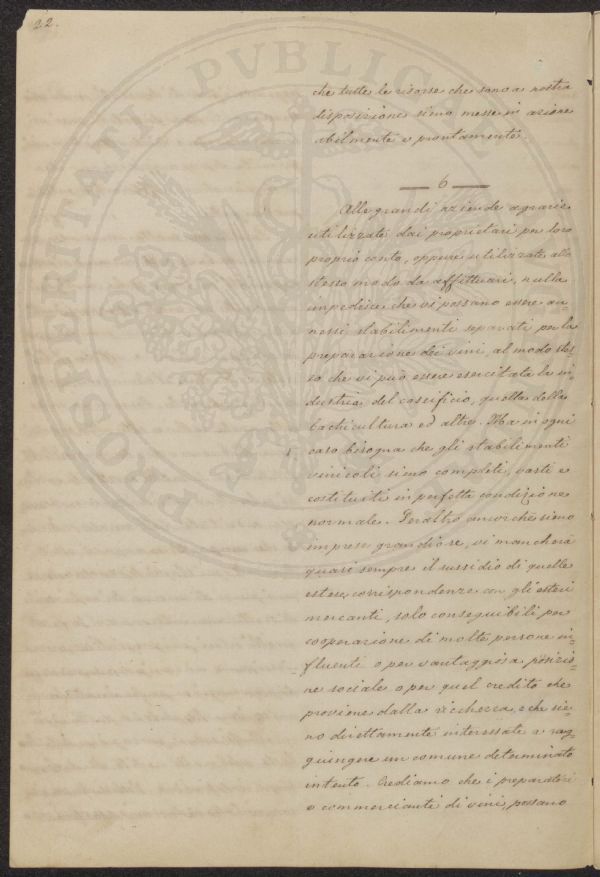 22.
PROSPERITATI PUBLICAE AUGENDAE
che tutte le risorse che sono a nostra
disposizione sieno messe in azione
abilmente e prontamente.
6
Alle grandi aziende agrarie
utilizzate dai proprietari per loro
proprio conto, oppure utilizzate allo
stesso modo da affittuari, nulla
impedisce che vi possano essere an-
nessi stabilimenti separati per la
preparazione dei vini, al modo stes-
so che vi può essere esercitata la in-
dustria del caseificio, quella della
bachicultura ed altre. Ma in ogni
caso bisogna che gli stabilimenti
vinicoli sieno completi, vasti e
costituiti in perfetta condizione
normale. Peraltro ancorchè sieno
imprese grandiose, vi mancherà
quasi sempre il sussidio di quelle
estese corrispondenze con gli esteri
mercanti, solo conseguibili per
cooperazione di molte persone in-
fluenti o per vantaggiosa posizio-
ne sociale o per quel credito che
proviene dalla ricchezza, e che sie-
no direttamente interessate a rag-
giungere un comune determinato
intento. Crediamo che i preparatori
o commercianti di vini possano